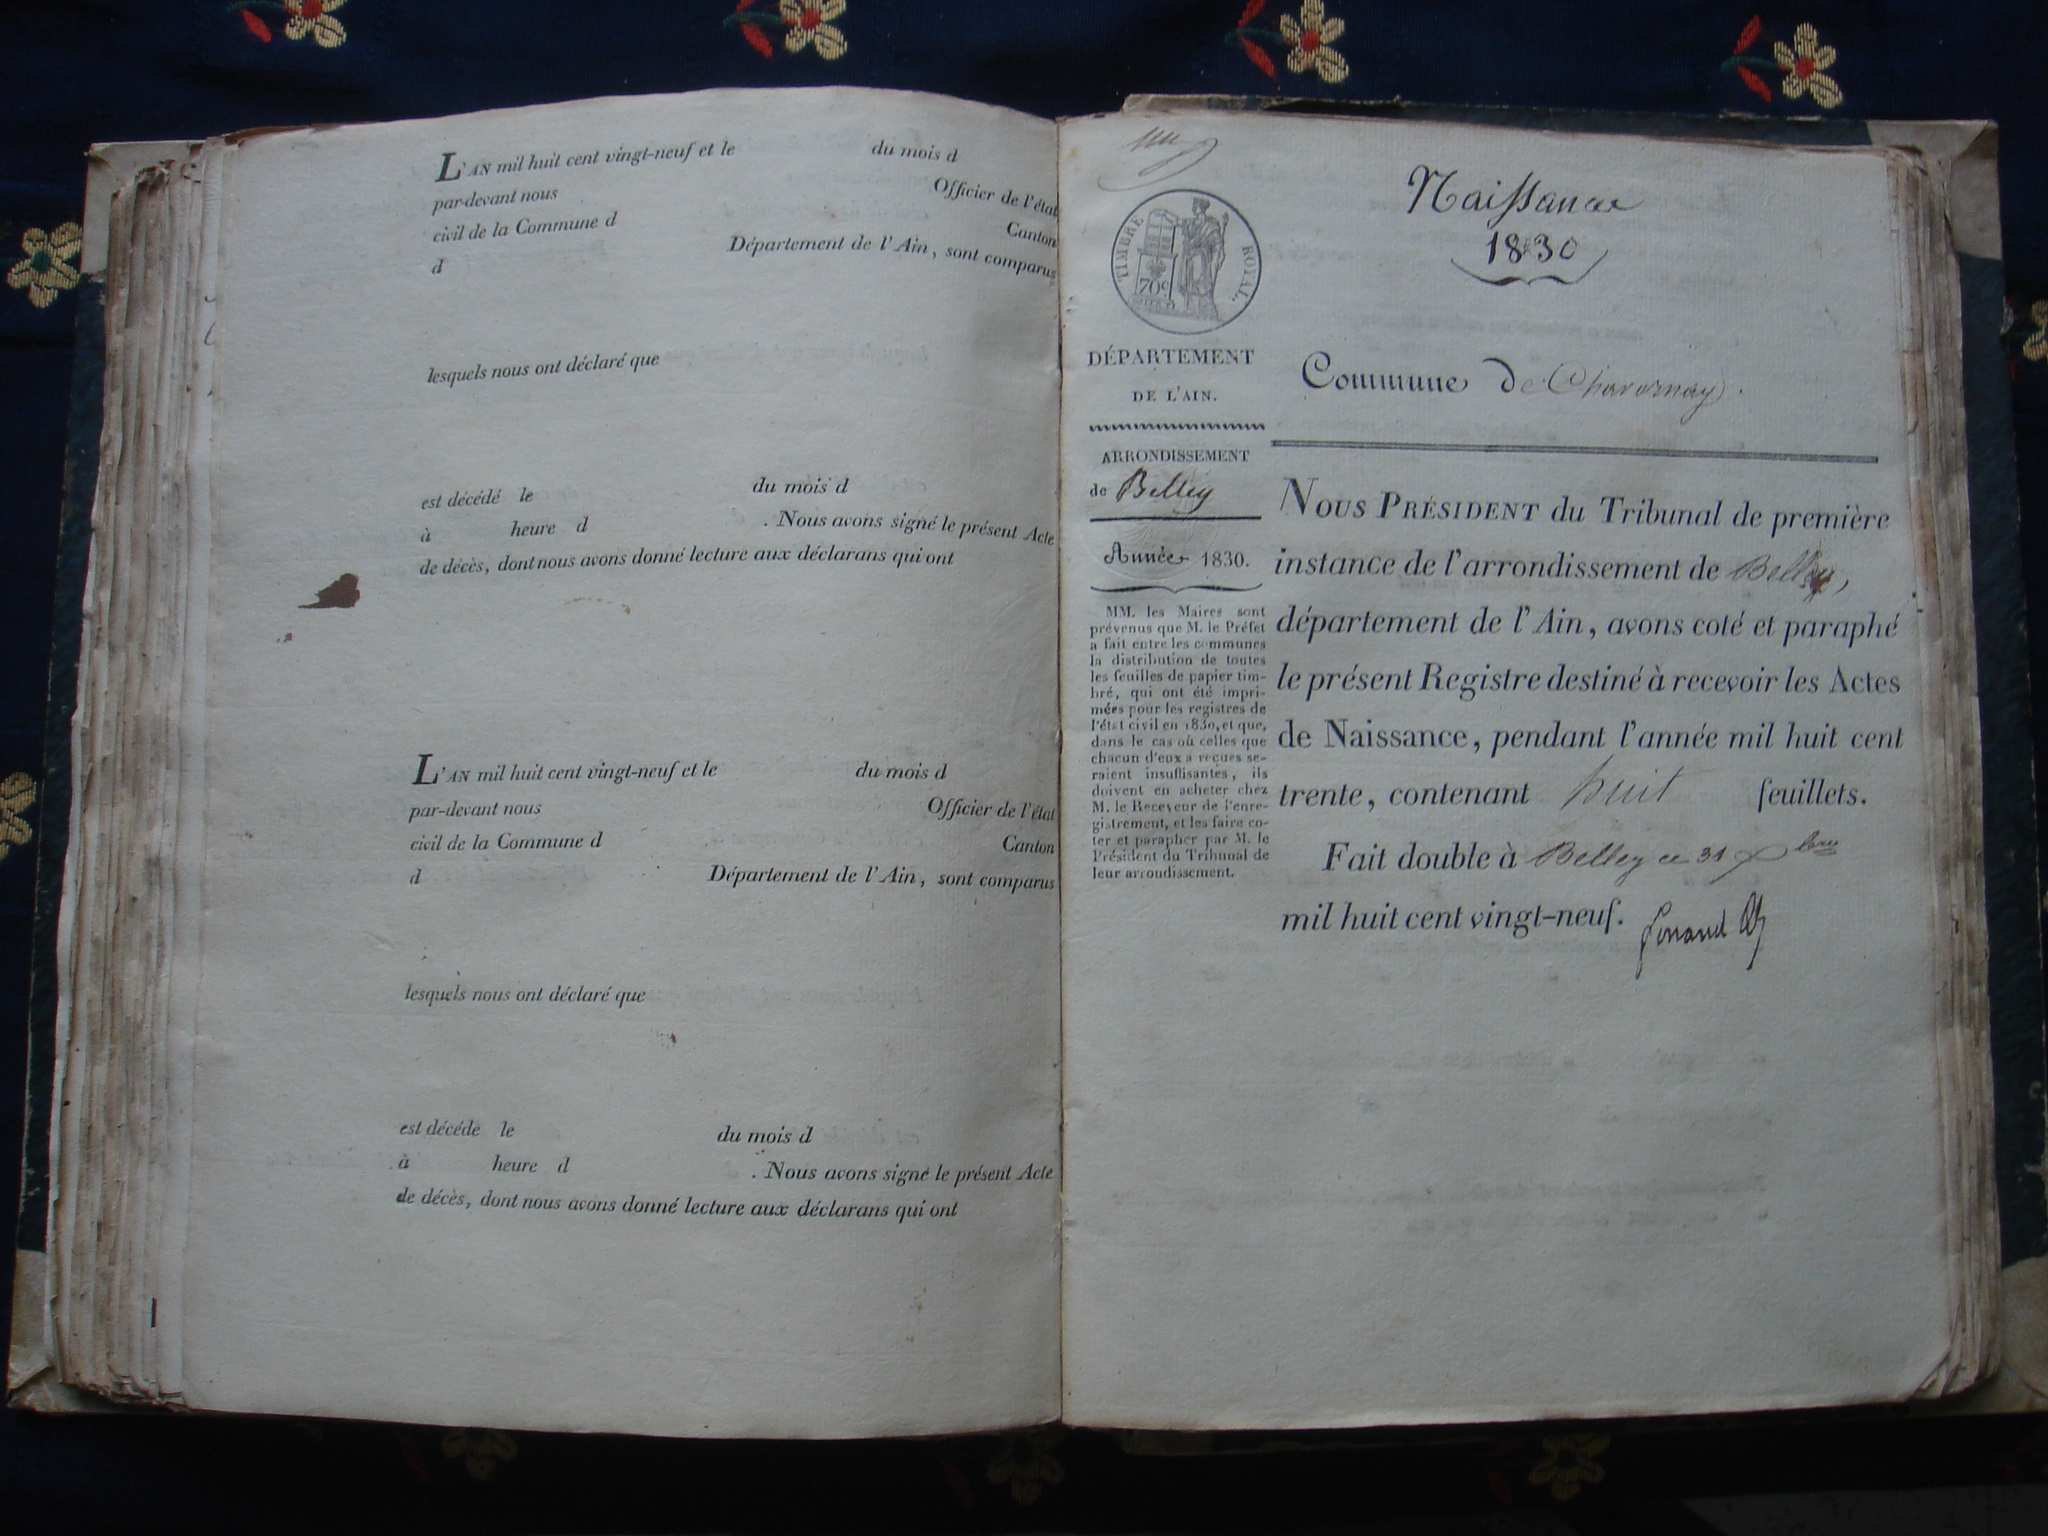 L'AN mil huit cent vingt-neuf et le du mois d
par-devant nous Officier de l'état
civil de la Commune d Canton
d Département de l'Ain, sont comparus
lesquels nous ont déclaré que
est décédé le du mois d
à heure d . Nous avons signé le présent Acte
de décès, dont nous avons donné lecture aux déclarans qui ont
L'AN mil huit cent vingt-neuf et le du mois d
par-devant nous Officier de l'état
civil de la Commune d Canton
d Département de l'Ain, sont comparus
lesquels nous ont déclaré que
est décédé le du mois d
à heure d . Nous avons signé le présent Acte
de décès, dont nous avons donné lecture aux déclarans qui ont
TIMBRE ROYAL.
70c
DÉPARTEMENT
DE L'AIN.
ARRONDISSEMENT
de Belley
Année 1830.
MM. les Maires sont
prévenus que M. le Préfet
a fait entre les communes
la distribution de toutes
les feuilles de papier tim-
bré, qui ont été impri-
mées pour les registres de
l'état civil en 1830, et que,
dans le cas où celles que
chacun d'eux a reçues se-
raient insuffisantes, ils
doivent en acheter chez
M. le Receveur de l'enre-
gistrement, et les faire co-
ter et parapher par M. le
Président du Tribunal de
leur arrondissement.
Naissance
1830
Commune De Chavornay.
NOUS PRÉSIDENT du Tribunal de première
instance de l'arrondissement de Belley,
département de l'Ain, avons coté et paraphé
le présent Registre destiné à recevoir les Actes
de Naissance, pendant l'année mil huit cent
trente, contenant huit feuillets.
Fait double à Belley ce 31 Xbre
mil huit cent vingt-neuf.